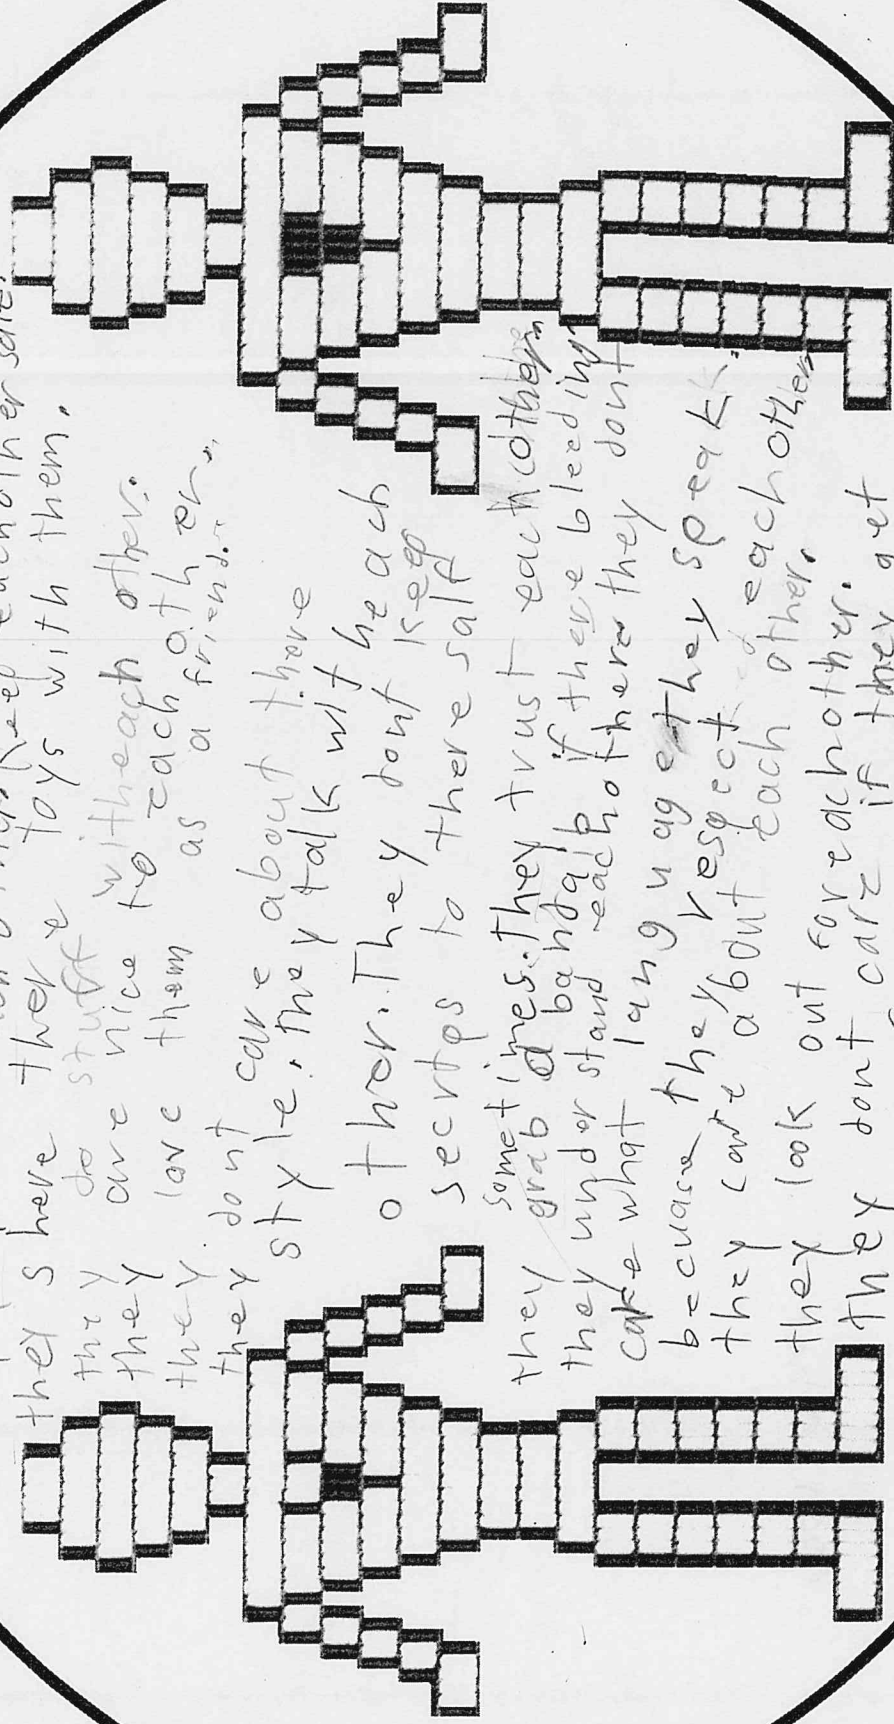 keep each other safe.
they share there toys with them.
they do stuff with each other.
they are nice to each other.
they love them as a friend.
they dont care about there
style. They talk wit heach
other. They dont keep
secrtes to there salf
sometimes. They trust each other
they grab a bandaib if there bleeding
they understand eachother they dont
care what language they speak.
becuase they respect each other
they care about each other.
they look out for eachother.
they dont care if they get